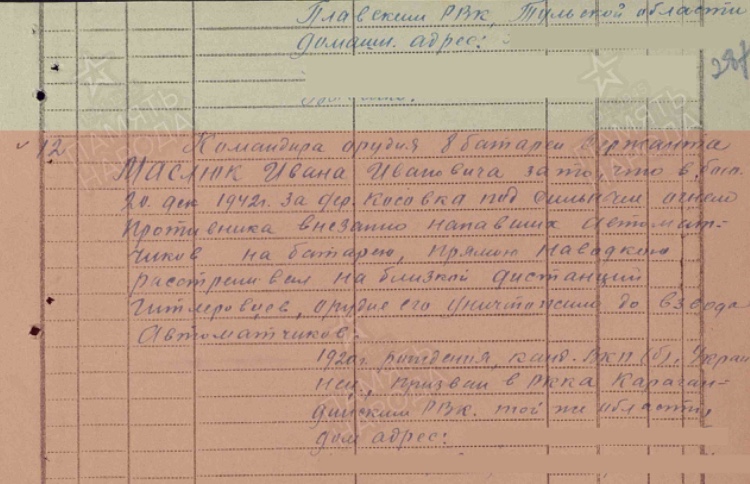 Плавским РВК, Тульской области
домашн. адрес:
287
12. Командира орудия 8 батареи Сержанта
МАСЛЮК Ивана Ивановича за то, что в бою
20 дек 1942г. за дер. Косовка под сильным огнем
противника внезапно напавших автомат-
чиков на батарею, прямою наводкою
расстреливал на близкой дистанции
гитлеровцев, орудие его уничтожило до взвода
Автоматчиков.
1920г. рождения, канд. ВКП(б), Украи
нец, призван в РККА Караган-
динским РВК. той же области,
дом адрес:
ПАМЯТЬ
НАРОДА
ПАМЯТЬ
НАРОДА
ПАМЯТЬ
НАРОДА